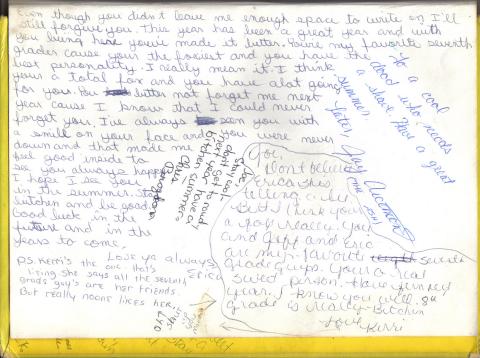 Even though you didn't leave me enough space to write on I'll
still forgive you. This year has been a great year and with
you being here you've made it better. You're my favorite seventh
grader cause your the foxiest and you have the
best personality. I really mean it. I think
your a total fox and you have alot going
for you. You better not forget me next
year cause I know that I could never
forget you. I've always seen you with
a smile on your face and you were never
down and that made me
feel good inside to
see you always happy.
I hope I see you
in the summer. Stay
bitchen and be good
Good luck in the
future and in the
years to come.
Love ya always,
Erica
P.S. Kerri's the one that's
lying she says all the seventh
grade guy's are her friends
But really noone likes her.
To a cool
dood who needs
a shave. Have a great
summer.
Later, Jay
stay cool
don't get to rowdy
next year have a
bitchen summer
Chris
Joe,
Don't believe
Erica she's
telling a lie
But I think your
a fox really. You
and Jeff and Eric
are my favorite seventh
grade guys. Your a real
sweet person. Have fun next
year. I know you will. 8th
grade is really bitchen
Love,
Kerri